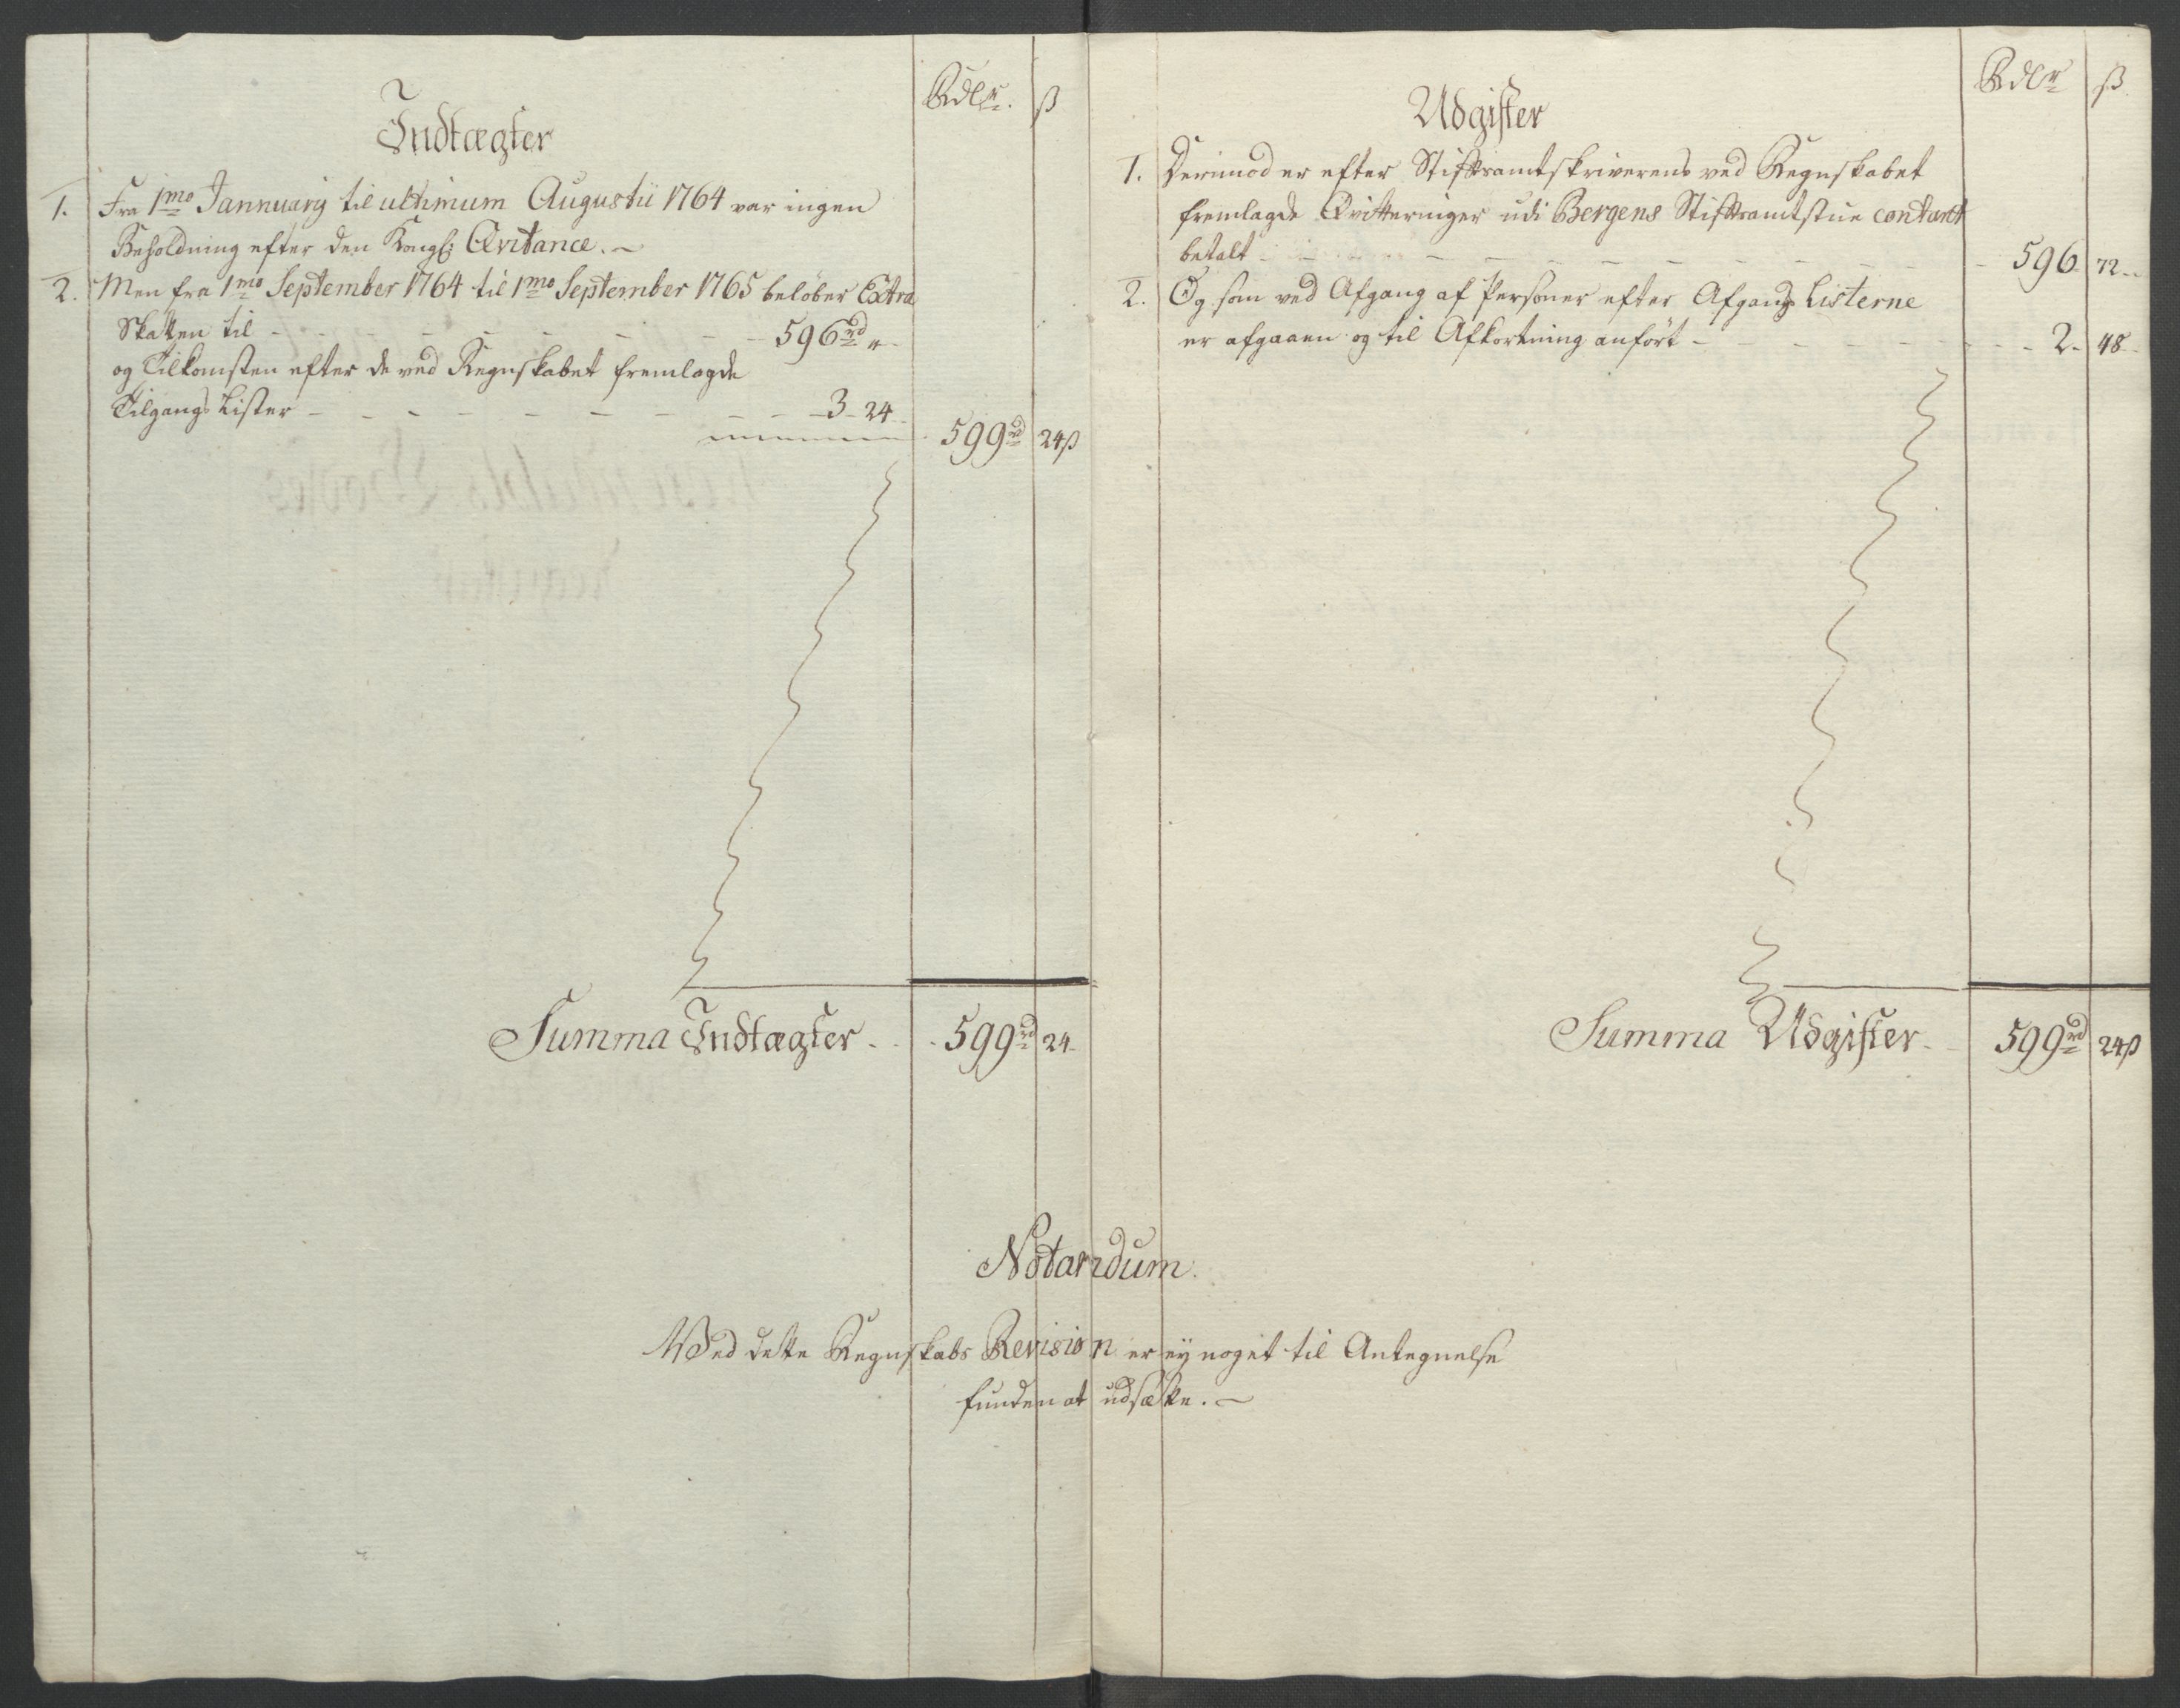 Rdlr. ß
Indtægter
1. Fra 1mo Jannuarij til ultimum Augustii 1764 var ingen
Beholdning efter den Kongl: Qvitance. -
2. Men fra 1mo September 1764 til 1mo September 1765 beløber Extra
Skatten til - - - - - - - 596rd „ -
og Tilkomsten efter de ved Regnskabet fremlagde
Tilgangs Lister - - - - - - - - 3 - 24 -
599rd 24ß
Summa Indtægter - - 599rd 24 -
Rdlr ß.
Udgifter
1. Derimod er efter Stiftsamtskriverens ved Regnskabet
fremlagde Qvitteringer udi Bergens Stiftsamtstue contant
betalt - - - - - - - - 596 - 72 - -
2. Og som ved Afgang af Personer efter Afgangs Listerne
er afgaaen og til Afkortning anført - - - - - - 2 - 48 -
Summa Udgifter - 599rd 24ß
Notandum.
Ved dette Regnskabs Revision er ey noget til Antegnelse
funden at udsætte. -